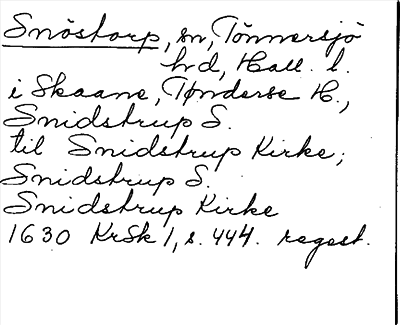 Snöstorp, sn, Tönnersjö
hd, Hall. l.
i Skaane, Tønderse H.,
Snidstrup S.
til Snidstrup Kirke;
Snidstrup S.
Snidstrup Kirke
1630 KrSk 1, s. 444. regest.